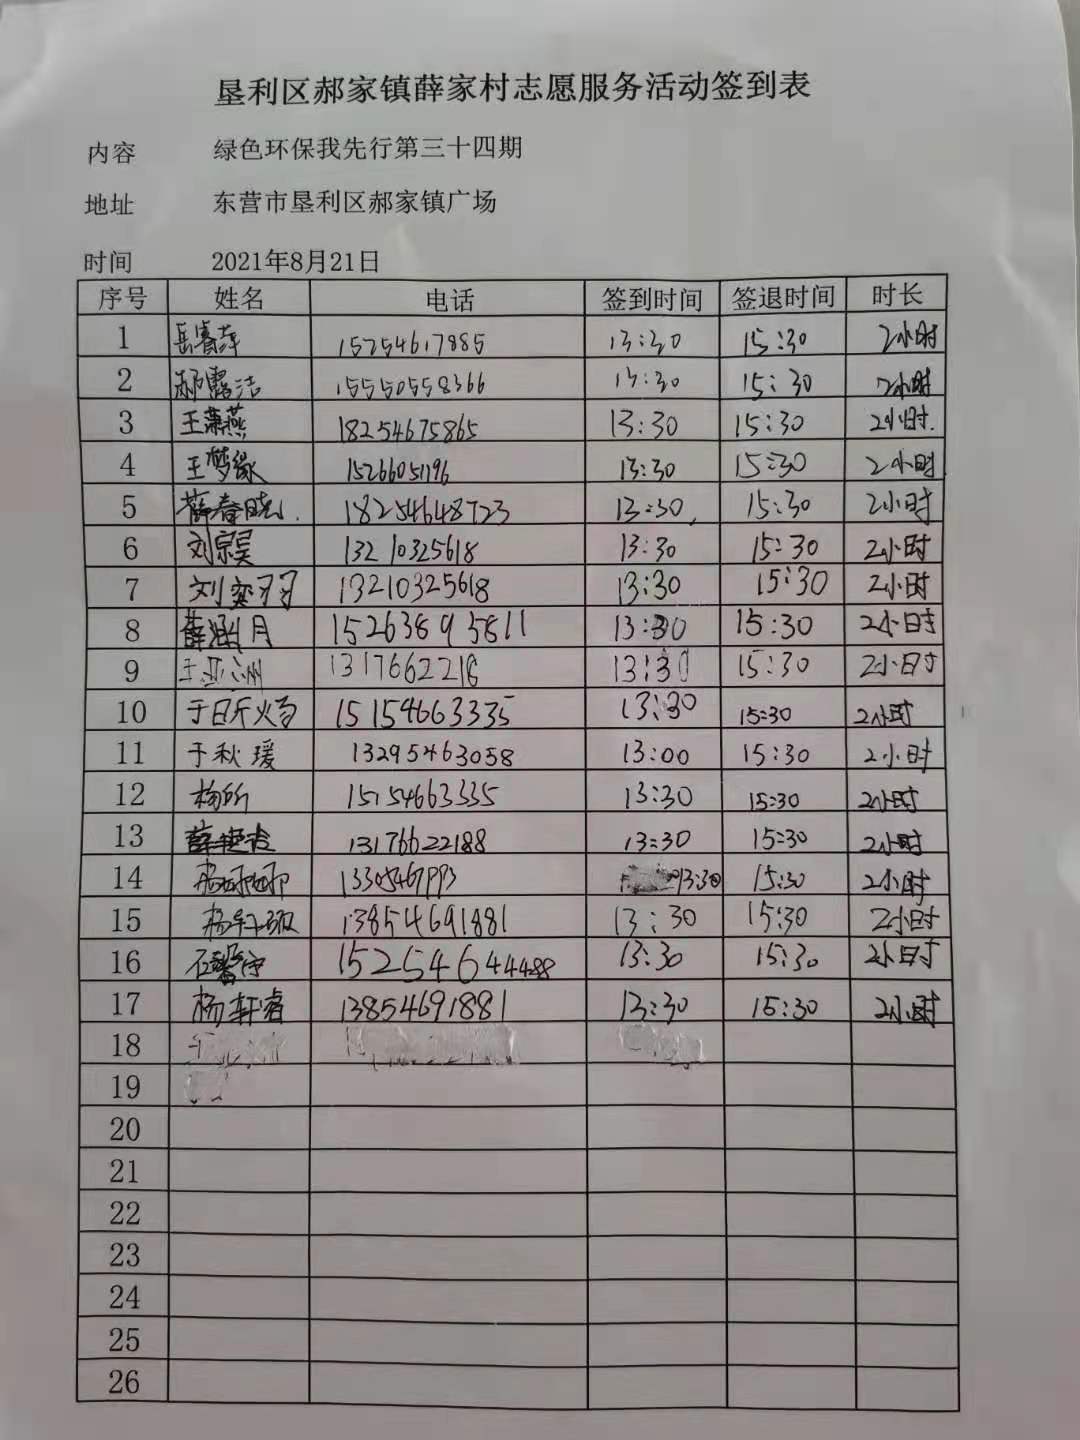 垦利区郝家镇薛家村志愿服务活动签到表
内容 绿色环保我先行第三十四期
地址 东营市垦利区郝家镇广场
时间 2021年8月21日
序号 姓名 电话 签到时间 签退时间 时长
1 岳睿萍 15254617885 13:30 15:30 2小时
2 郝露洁 15550558366 13:30 15:30 2小时
3 王潇燕 18254675865 13:30 15:30 2小时.
4 王梦缘 15266051196 13:30 15:30 2小时
5 薛春晓 18254648723 13:30 15:30 2小时
6 刘宗昊 13210325618 13:30 15:30 2小时
7 刘奕羽 13210325618 13:30 15:30 2小时
8 薛涵月 15263895811 13:30 15:30 2小时
9 于亚洲 1317662218 13:30 15:30 2小时
10 于昕 15154663335 13:30 15:30 2小时
11 于秋瑗 13295463058 13:00 15:30 2小时
12 杨所 15154663335 13:30 15:30 2小时
13 13176622188 13:30 15:30 2小时
14 13:30 15:30 2小时
15 13854691881 13:30 15:30 2小时
16 13:30 15:30 2小时
17 杨轩睿 13854691881 13:30 15:30 2小时
18
19
20
21
22
23
24
25
26